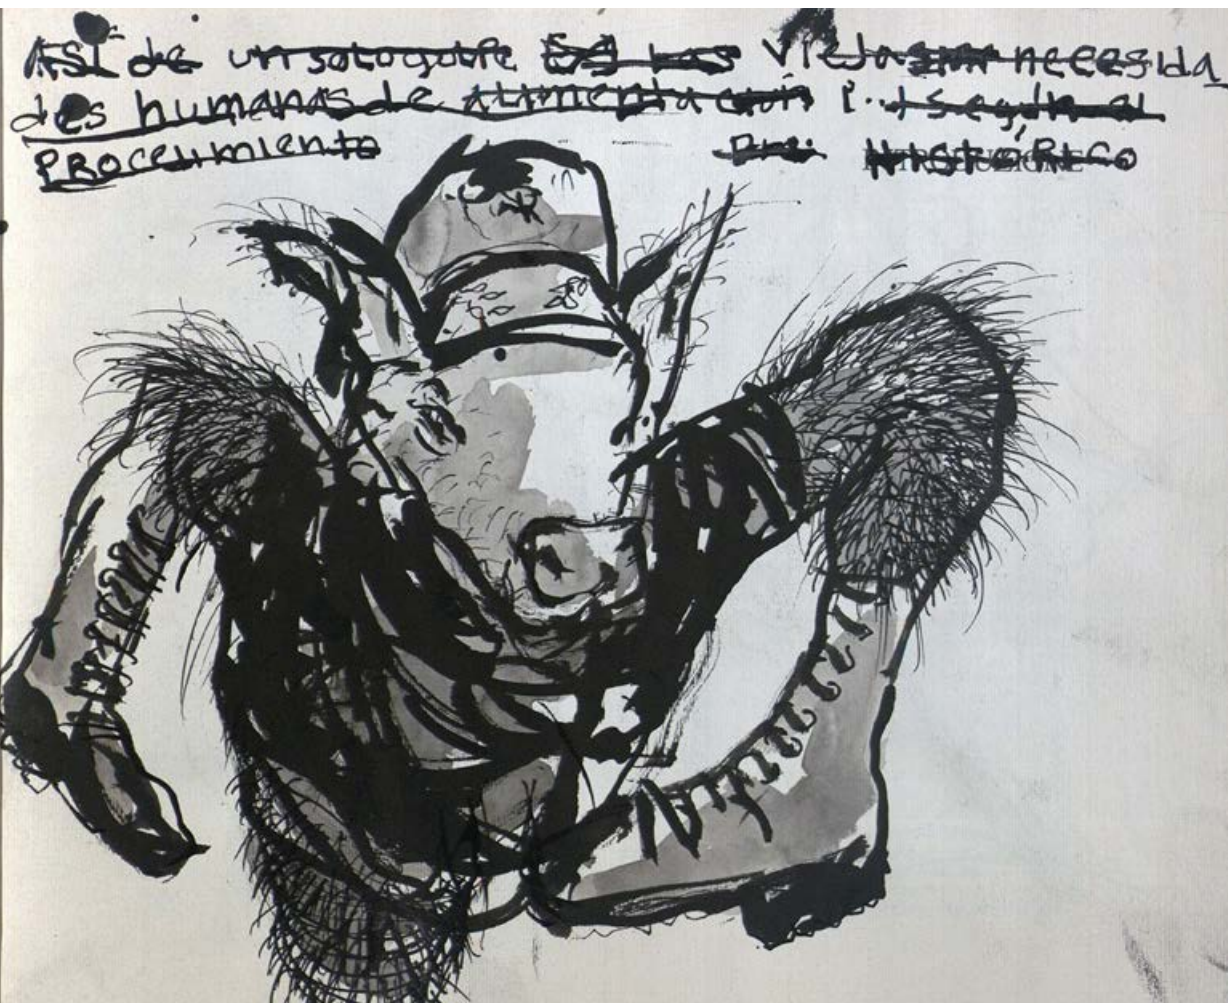 ASÍ de un solo golpe las Viejas necesida
des humanas de alimentacion i. según el
PROCEDIMIENTO Pre: HISTÓRICO